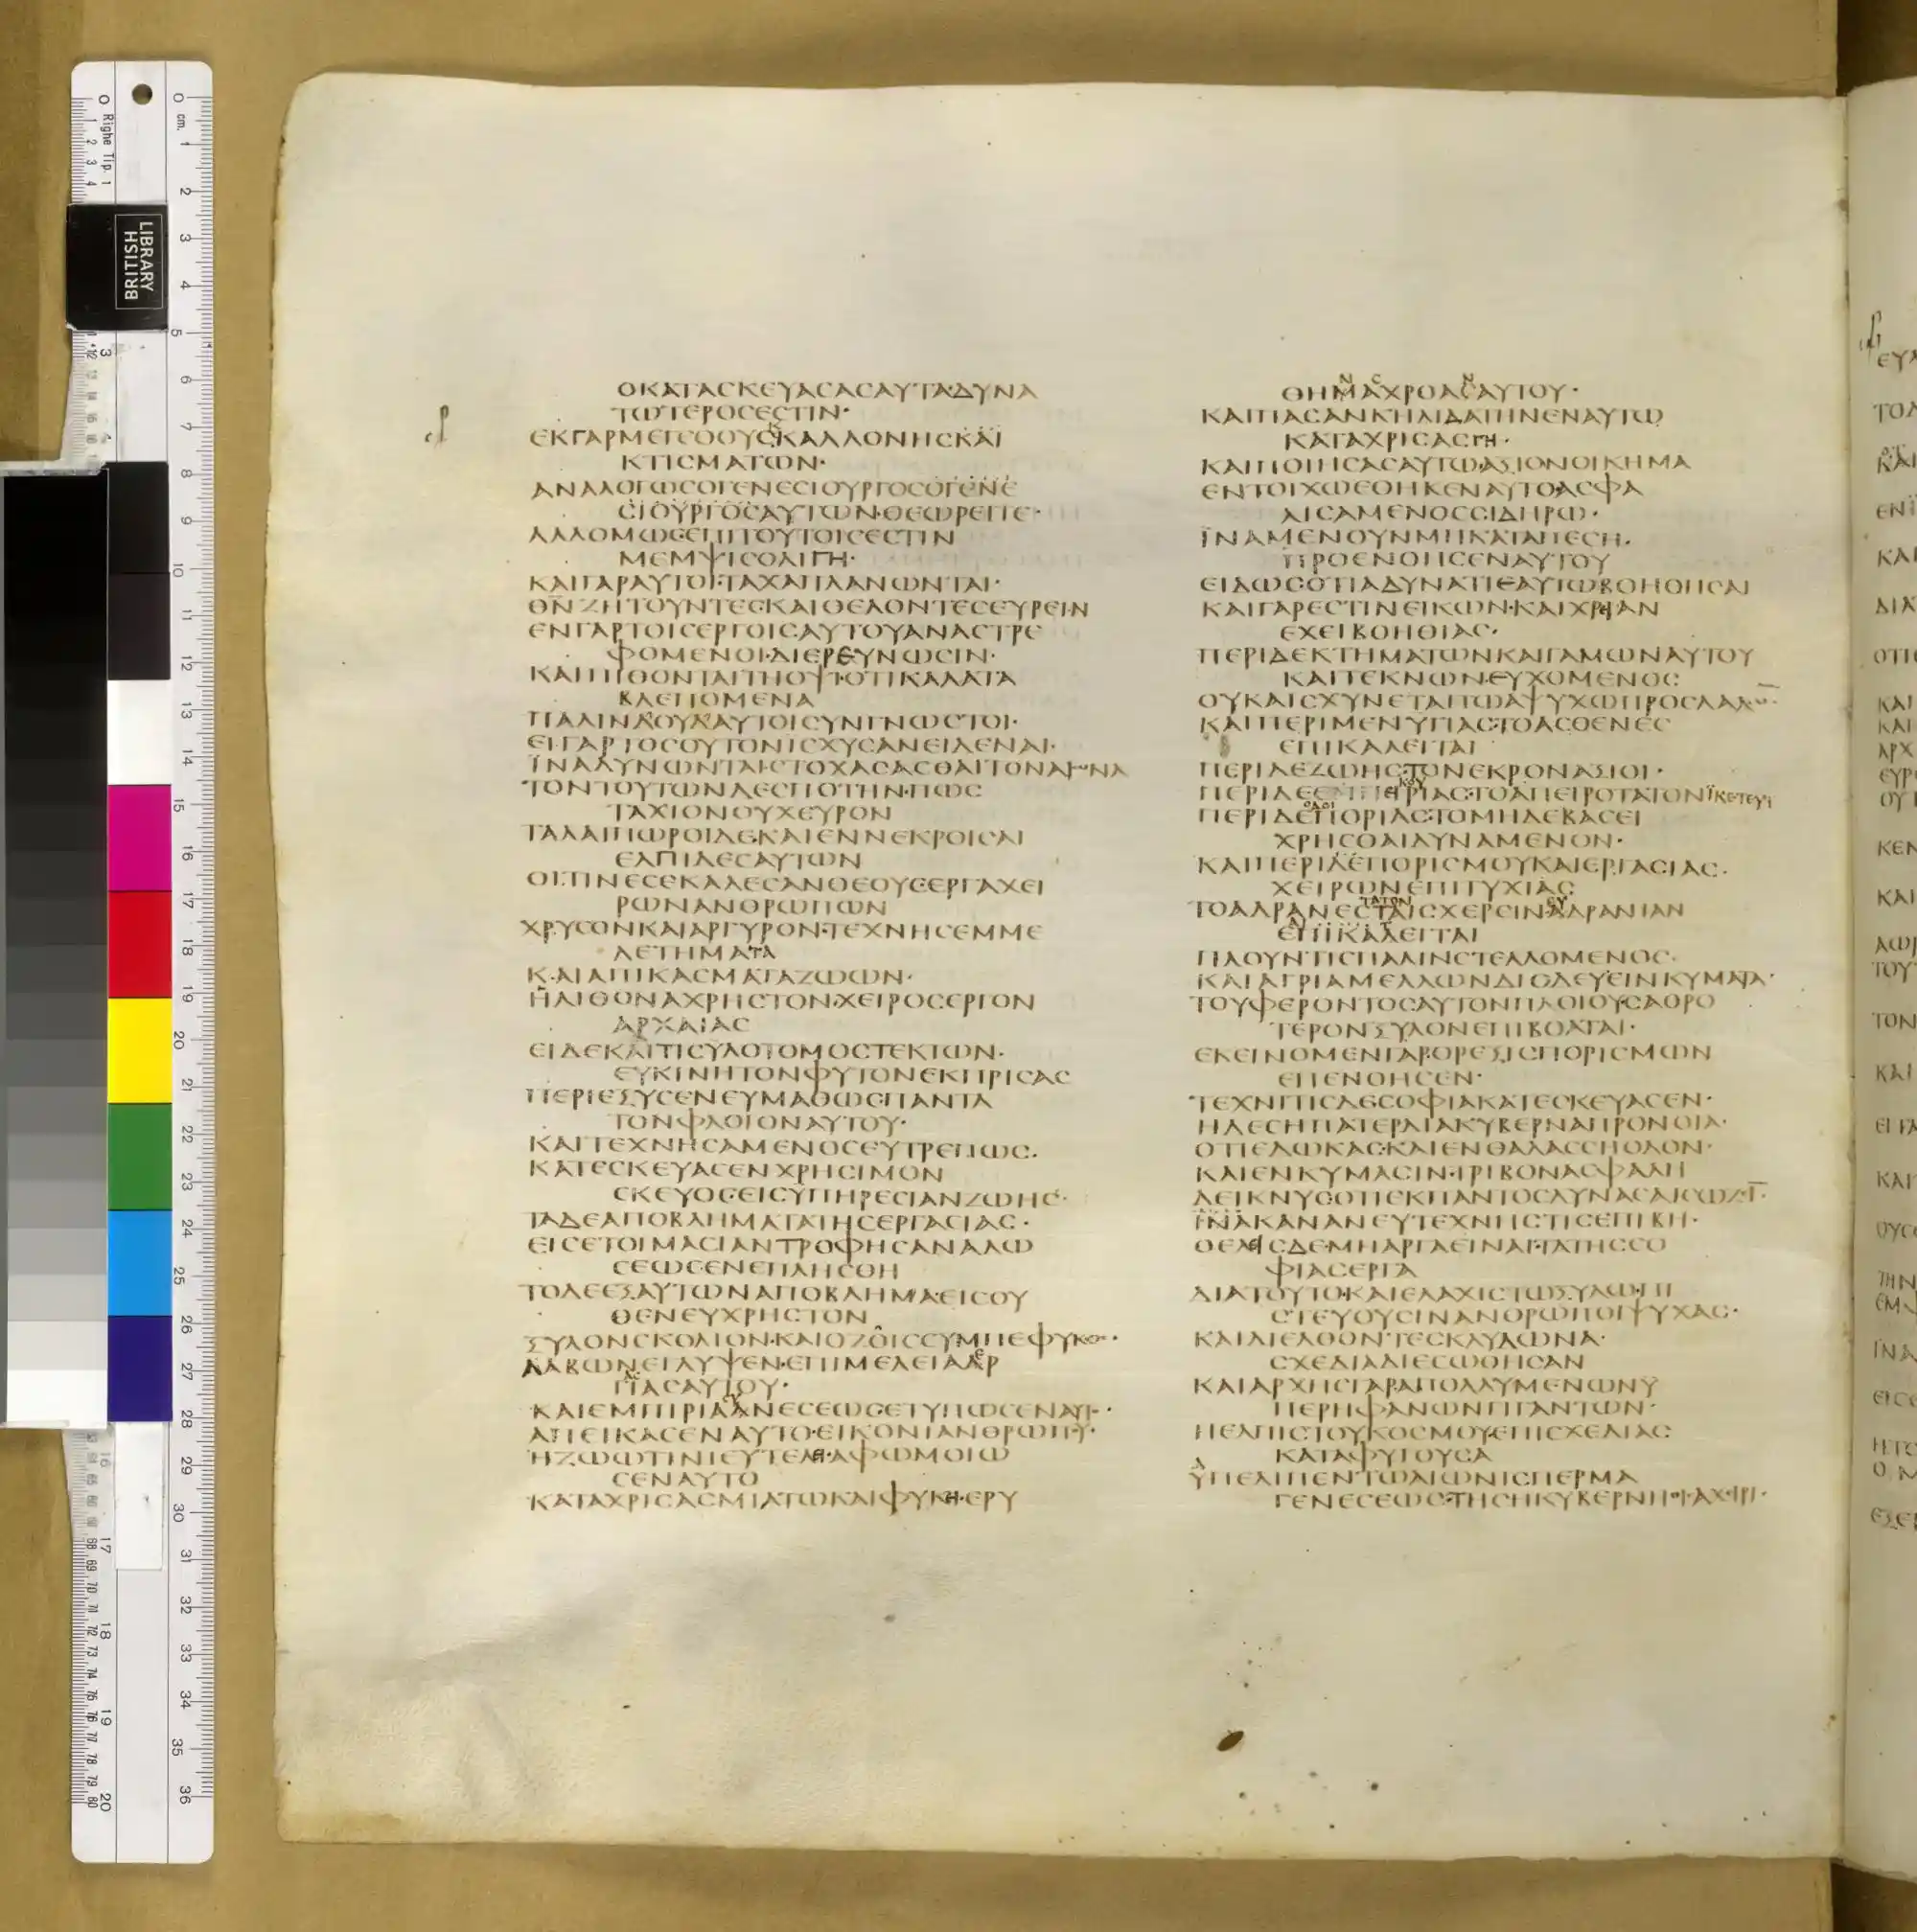 ΟΚΑΤΑCΚΕΥΑCΑCΑΥΤΑΔΥΝΑ
ΤΩΤΕΡΟCΕCΤΙΝ·
ΕΚΓΑΡΜΕΓΕΘΟΥCΚΑΛΛΟΝΗCΚΑΙ
ΚΤΙCΜΑΤΩΝ·
ΑΝΑΛΟΓΩCΟΓΕΝΕCΙΟΥΡΓΟCΟΓΕΝΕ
CΙΟΥΡΓΟCΑΥΤΩΝ·ΘΕΩΡΕΙΤΕ·
ΑΛΛΟΜΩCΕΠΙΤΟΥΤΟΙCΕCΤΙΝ
ΜΕΜΨΙCΟΛΙΓΗ·
ΚΑΙΓΑΡΑΥΤΟΙ·ΤΑΧΑΠΛΑΝΩΝΤΑΙ·
ΘΝ̅ΖΗΤΟΥΝΤΕC·ΚΑΙΘΕΛΟΝΤΕCΕΥΡΕΙΝ
ΕΝΓΑΡΤΟΙCΕΡΓΟΙCΑΥΤΟΥΑΝΑCΤΡΕ
ΦΟΜΕΝΟΙ·ΔΙΕΡΕΥΝΩCΙΝ·
ΚΑΙΠΙΘΟΝΤΑΙΤΗΟΨΙ·ΟΤΙΚΑΛΑΤΑ
ΒΛΕΠΟΜΕΝΑ
ΠΑΛΙΝΔΟΥΔΑΥΤΟΙCΥΝΓΝΩCΤΟΙ·
ΕΙ·ΓΑΡΤΟCΟΥΤΟΝΙCΧΥCΑΝΕΙΔΕΝΑΙ·
ΪΝΑΔΥΝΩΝΤΑΙ·CΤΟΧΑCΑCΘΑΙΤΟΝΑΙΩΝΑ
ΤΟΝΤΟΥΤΩΝΔΕCΠΟΤΗΝ·ΠΩC
ΤΑΧΙΟΝΟΥΧΕΥΡΟΝ
ΤΑΛΑΙΠΩΡΟΙΔΕ·ΚΑΙΕΝΝΕΚΡΟΙCΑΙ
ΕΛΠΙΔΕCΑΥΤΩΝ
ΟΙΤΙΝΕCΕΚΑΛΕCΑΝΘΕΟΥC·ΕΡΓΑΧΕΙ
ΡΩΝΑΝΘΡΩΠΩΝ
ΧΡΥCΟΝΚΑΙΑΡΓΥΡΟΝ·ΤΕΧΝΗCΕΜΜΕ
ΛΕΤΗΜΑΤΑ
ΚΑΙΑΠΙΚΑCΜΑΤΑΖΩΩΝ·
ΗΛΙΘΟΝΑΧΡΗCΤΟΝ·ΧΕΙΡΟCΕΡΓΟΝ
ΑΡΧΑΙΑC
ΕΙΔΕΚΑΙΤΙCΥΛΟΤΟΜΟCΤΕΚΤΩΝ·
ΕΥΚΙΝΗΤΟΝΦΥΤΟΝΕΚΠΡΙCΑC
ΠΕΡΙΕΞΥCΕΝΕΥΜΑΘΩC·ΠΑΝΤΑ
ΤΟΝΦΛΟΙΟΝΑΥΤΟΥ·
ΚΑΙΤΕΧΝΗCΑΜΕΝΟCΕΥΤΡΕΠΩC·
ΚΑΤΕCΚΕΥΑCΕΝΧΡΗCΙΜΟΝ
CΚΕΥΟC·ΕΙCΥΠΗΡΕCΙΑΝΖΩΗC·
ΤΑΔΕΑΠΟΒΛΗΜΑΤΑΤΗCΕΡΓΑCΙΑC·
ΕΙCΕΤΟΙΜΑCΙΑΝΤΡΟΦΗCΑΝΑΛΩ
CΕΩCΕΝΕΠΛΗCΘΗ
ΤΟΔΕΕΞΑΥΤΩΝΑΠΟΒΛΗΜΑ·ΕΙCΟΥ
ΘΕΝΕΥΧΡΗCΤΟΝ
ΞΥΛΟΝCΚΟΛΙΟΝ·ΚΑΙΟΖΟΙCCΥΜΠΕΦΥΚΟC·
ΛΑΒΩΝΕΓΛΥΨΕΝ·ΕΠΙΜΕΛΕΙΑΑΡ
ΓΙΑCΑΥΤΟΥ·
ΚΑΙΕΜΠΙΡΙΑΑΝΕCΕΩC·ΕΤΥΠΩCΕΝΑΥΤ·
ΑΠΕΙΚΑCΕΝΑΥΤΟ·ΕΙΚΟΝΙΑΝΘΡΩΠΟΥ·
ΗΖΩΩΤΙΝΙΕΥΤΕΛΕΙ·ΑΦΩΜΟΙΩ
CΕΝΑΥΤΟ
ΚΑΤΑΧΡΙCΑCΜΙΛΤΩΚΑΙΦΥΚΗ·ΕΡΥ
ΘΗΜΑΧΡΟΑCΑΥΤΟΥ·
ΚΑΙΠΑCΑΝΚΗΛΙΔΑΤΗΝΕΝΑΥΤΩ
ΚΑΤΑΧΡΙCΑCΓΗ·
ΚΑΙΠΟΙΗCΑCΑΥΤΩΑΞΙΟΝΟΙΚΗΜΑ
ΕΝΤΟΙΧΩΕΘΗΚΕΝΑΥΤΟ·ΑCΦΑ
ΛΙCΑΜΕΝΟCCΙΔΗΡΩ·
ΪΝΑΜΕΝΟΥΝΜΗΚΑΤΑΠΕCΗ·
ΠΡΟΕΝΟΗCΕΝΑΥΤΟΥ
ΕΙΔΩCΟΤΙΑΔΥΝΑΤΙΕΑΥΤΩΒΟΗΘΗCΑΙ
ΚΑΙΓΑΡΕCΤΙΝΕΙΚΩΝ·ΚΑΙΧΡΙΑΝ
ΕΧΕΙΒΟΗΘΙΑC·
ΠΕΡΙΔΕΚΤΗΜΑΤΩΝΚΑΙΓΑΜΩΝΑΥΤΟΥ
ΚΑΙΤΕΚΝΩΝ·ΕΥΧΟΜΕΝΟC
ΟΥΚΑΙCΧΥΝΕΤΑΙΤΩΑΨΥΧΩΠΡΟCΛΑΛΩ̅·
ΚΑΙΠΕΡΙΜΕΝΥΓΙΑC·ΤΟΑCΘΕΝΕC
ΕΠΙΚΑΛΕΙΤΑΙ
ΠΕΡΙΔΕΖΩΗC·ΤΟΝΕΚΡΟΝΑΞΙΟΙ·
ΠΕΡΙΔΕΕΠΙΚΟΥΡΙΑC·ΤΟΑΠΕΙΡΟΤΑΤΟΝΪΚΕΤΕΥΙ
ΠΕΡΙΔΕΠΟΡΙΑC·ΤΟΜΗΔΕΒΑCΕΙ
ΧΡΗCΘΑΙΔΥΝΑΜΕΝΟΝ·
ΚΑΙΠΕΡΙΔΕΠΟΡΙCΜΟΥΚΑΙΕΡΓΑCΙΑC·
ΧΕΙΡΩΝΕΠΙΤΥΧΙΑC
ΤΟΑΔΡΑΝΕCΤΑΙCΧΕΡCΙΝΑΔΡΑΝΙΑΝ
ΕΠΙΚΑΛΕΙΤΑΙ
ΠΛΟΥΝΤΙCΠΑΛΙΝCΤΕΛΛΟΜΕΝΟC·
ΚΑΙΑΓΡΙΑΜΕΛΛΩΝΔΙΟΔΕΥΕΙΝΚΥΜΑΤΑ·
ΤΟΥΦΕΡΟΝΤΟCΑΥΤΟΝΠΛΟΙΟΥ·CΑΘΡΟ
ΤΕΡΟΝΞΥΛΟΝΕΠΙΒΟΑΤΑΙ·
ΕΚΕΙΝΟΜΕΝΓΑΡ·ΟΡΕΞΙCΠΟΡΙCΜΩΝ
ΕΠΕΝΟΗCΕΝ·
ΤΕΧΝΙΤΙCΔΕCΟΦΙΑΚΑΤΕCΚΕΥΑCΕΝ·
ΗΔΕCΗΠΑΤΕΡΔΙΑΚΥΒΕΡΝΑΠΡΟΝΟΙΑ·
ΟΤΙΕΔΩΚΑC·ΚΑΙΕΝΘΑΛΑCCΗΟΔΟΝ·
ΚΑΙΕΝΚΥΜΑCΙΝ·ΤΡΙΒΟΝΑCΦΑΛΗ
ΔΕΙΚΝΥCΟΤΙΕΚΠΑΝΤΟCΔΥΝΑCΑΙCΩΖΙ̅·
ΪΝΑΚΑΝΑΝΕΥΤΕΧΝΗCΤΙCΕΠΙΒΗ·
ΘΕΛΙCΔΕ·ΜΗΑΡΓΑΕΙΝΑΙ·ΤΑΤΗCCΟ
ΦΙΑCΕΡΓΑ
ΔΙΑΤΟΥΤΟ·ΚΑΙΕΛΑΧΙCΤΩΞΥΛΩ·ΠΙ
CΤΕΥΟΥCΙΝΑΝΘΡΩΠΟΙΨΥΧΑC·
ΚΑΙΔΙΕΛΘΟΝΤΕCΚΛΥΔΩΝΑ·
CΧΕΔΙΑΔΙΕCΩΘΗCΑΝ
ΚΑΙΑΡΧΗCΓΑΡ·ΑΠΟΛΛΥΜΕΝΩΝΥ
ΠΕΡΗΦΑΝΩΝΓΙΓΑΝΤΩΝ·
ΗΕΛΠΙCΤΟΥΚΟCΜΟΥ·ΕΠΙCΧΕΔΙΑC
ΚΑΤΑΦΥΓΟΥCΑ
ΥΠΕΛΙΠΕΝΤΩΑΙΩΝΙCΠΕΡΜΑ
ΓΕΝΕCΕΩC·ΤΗCΗΚΥΒΕΡΝΗΘΙ·ΑΧΙΡΙ·